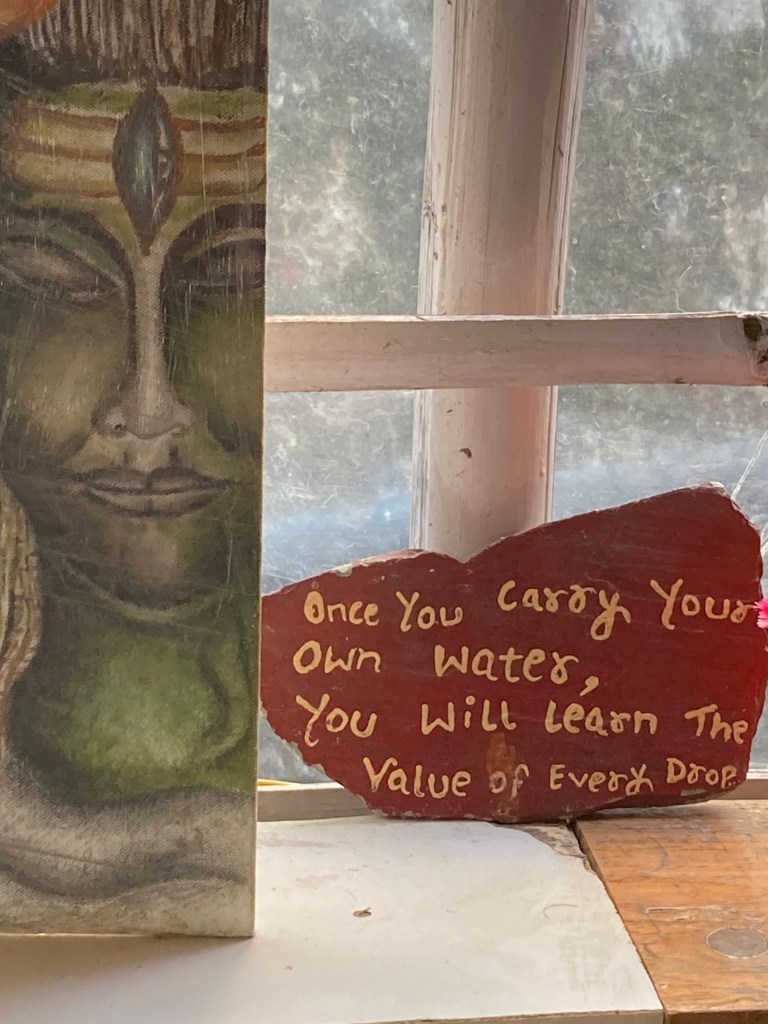 Once You Carry Your
Own Water,
You Will Learn The
Value of Every Drop.